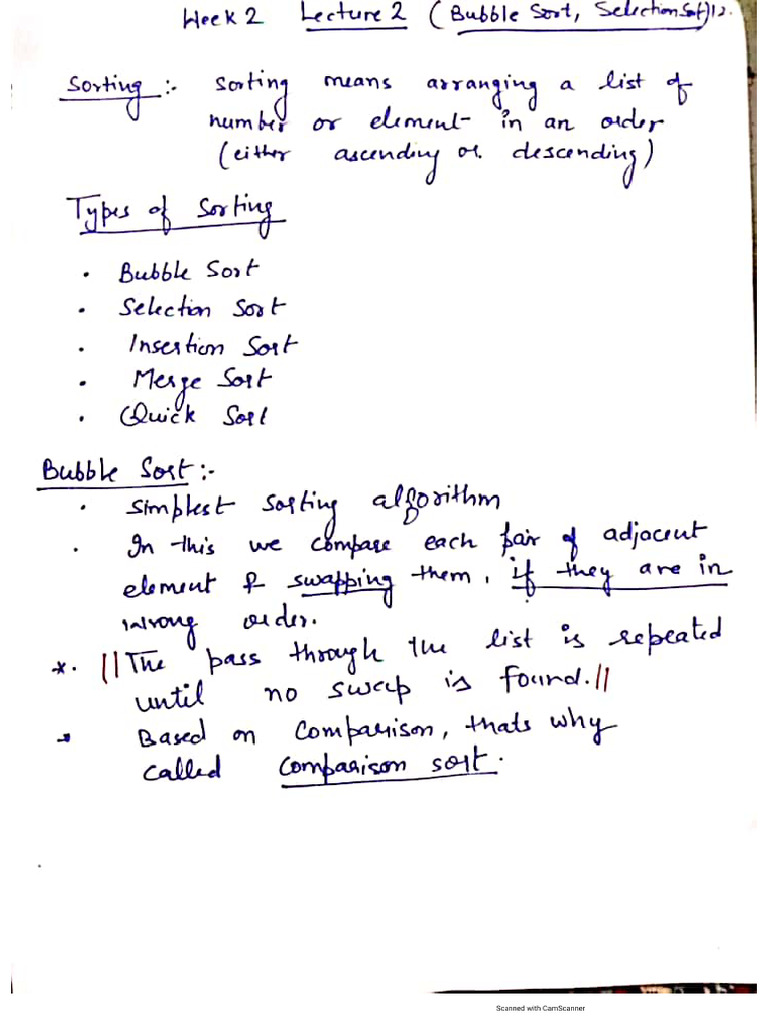 Week 2 Lecture 2 (Bubble Sort, Selection Sort) 12.
Sorting :- Sorting means arranging a list of
number or element in an order
(either ascending or descending)
Types of Sorting
• Bubble Sort
• Selection Sort
• Insertion Sort
• Merge Sort
• Quick Sort
Bubble Sort :-
• Simplest sorting algorithm
• In this we compare each pair of adjacent
element & swapping them, if they are in
wrong order.
*. ||The pass through the list is repeated
until no swap is found.||
→ Based on comparison, thats why
called comparison sort.
Scanned with CamScanner